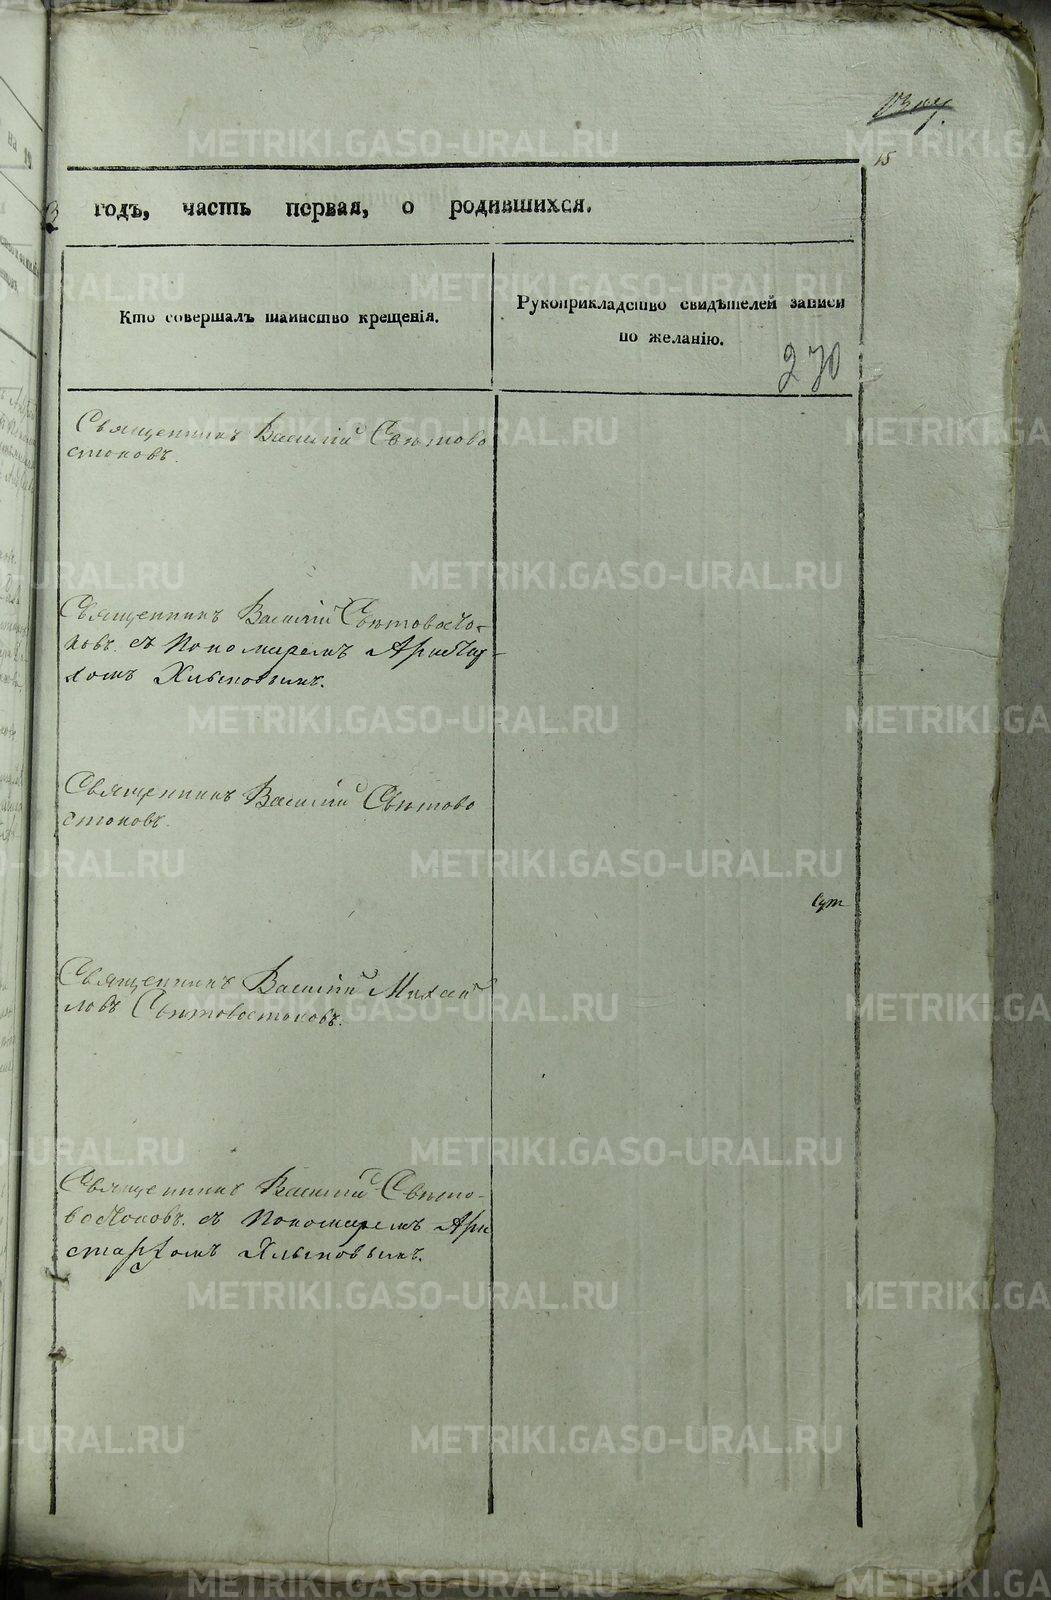 15
3 годъ, часть первая, о родившихся.
Кто совершалъ таинство крещенія.
Рукоприкладство свидѣтелей записи
по желанію.
270
Священникъ Василій Свѣтово
стоковъ.
Священникъ Василій Свѣтовосто-
ковъ. съ Пономаремъ Аристар-
хомъ Хлыновымъ.
Священникъ Василій Свѣтово
стоковъ.
Священникъ Василій Михаи
ловъ Свѣтовостоковъ.
Священникъ Василій Свѣто-
востоковъ. съ Пономаремъ Ари
стархомъ Хлыновымъ.
METRIKI.GASO-URAL.RU